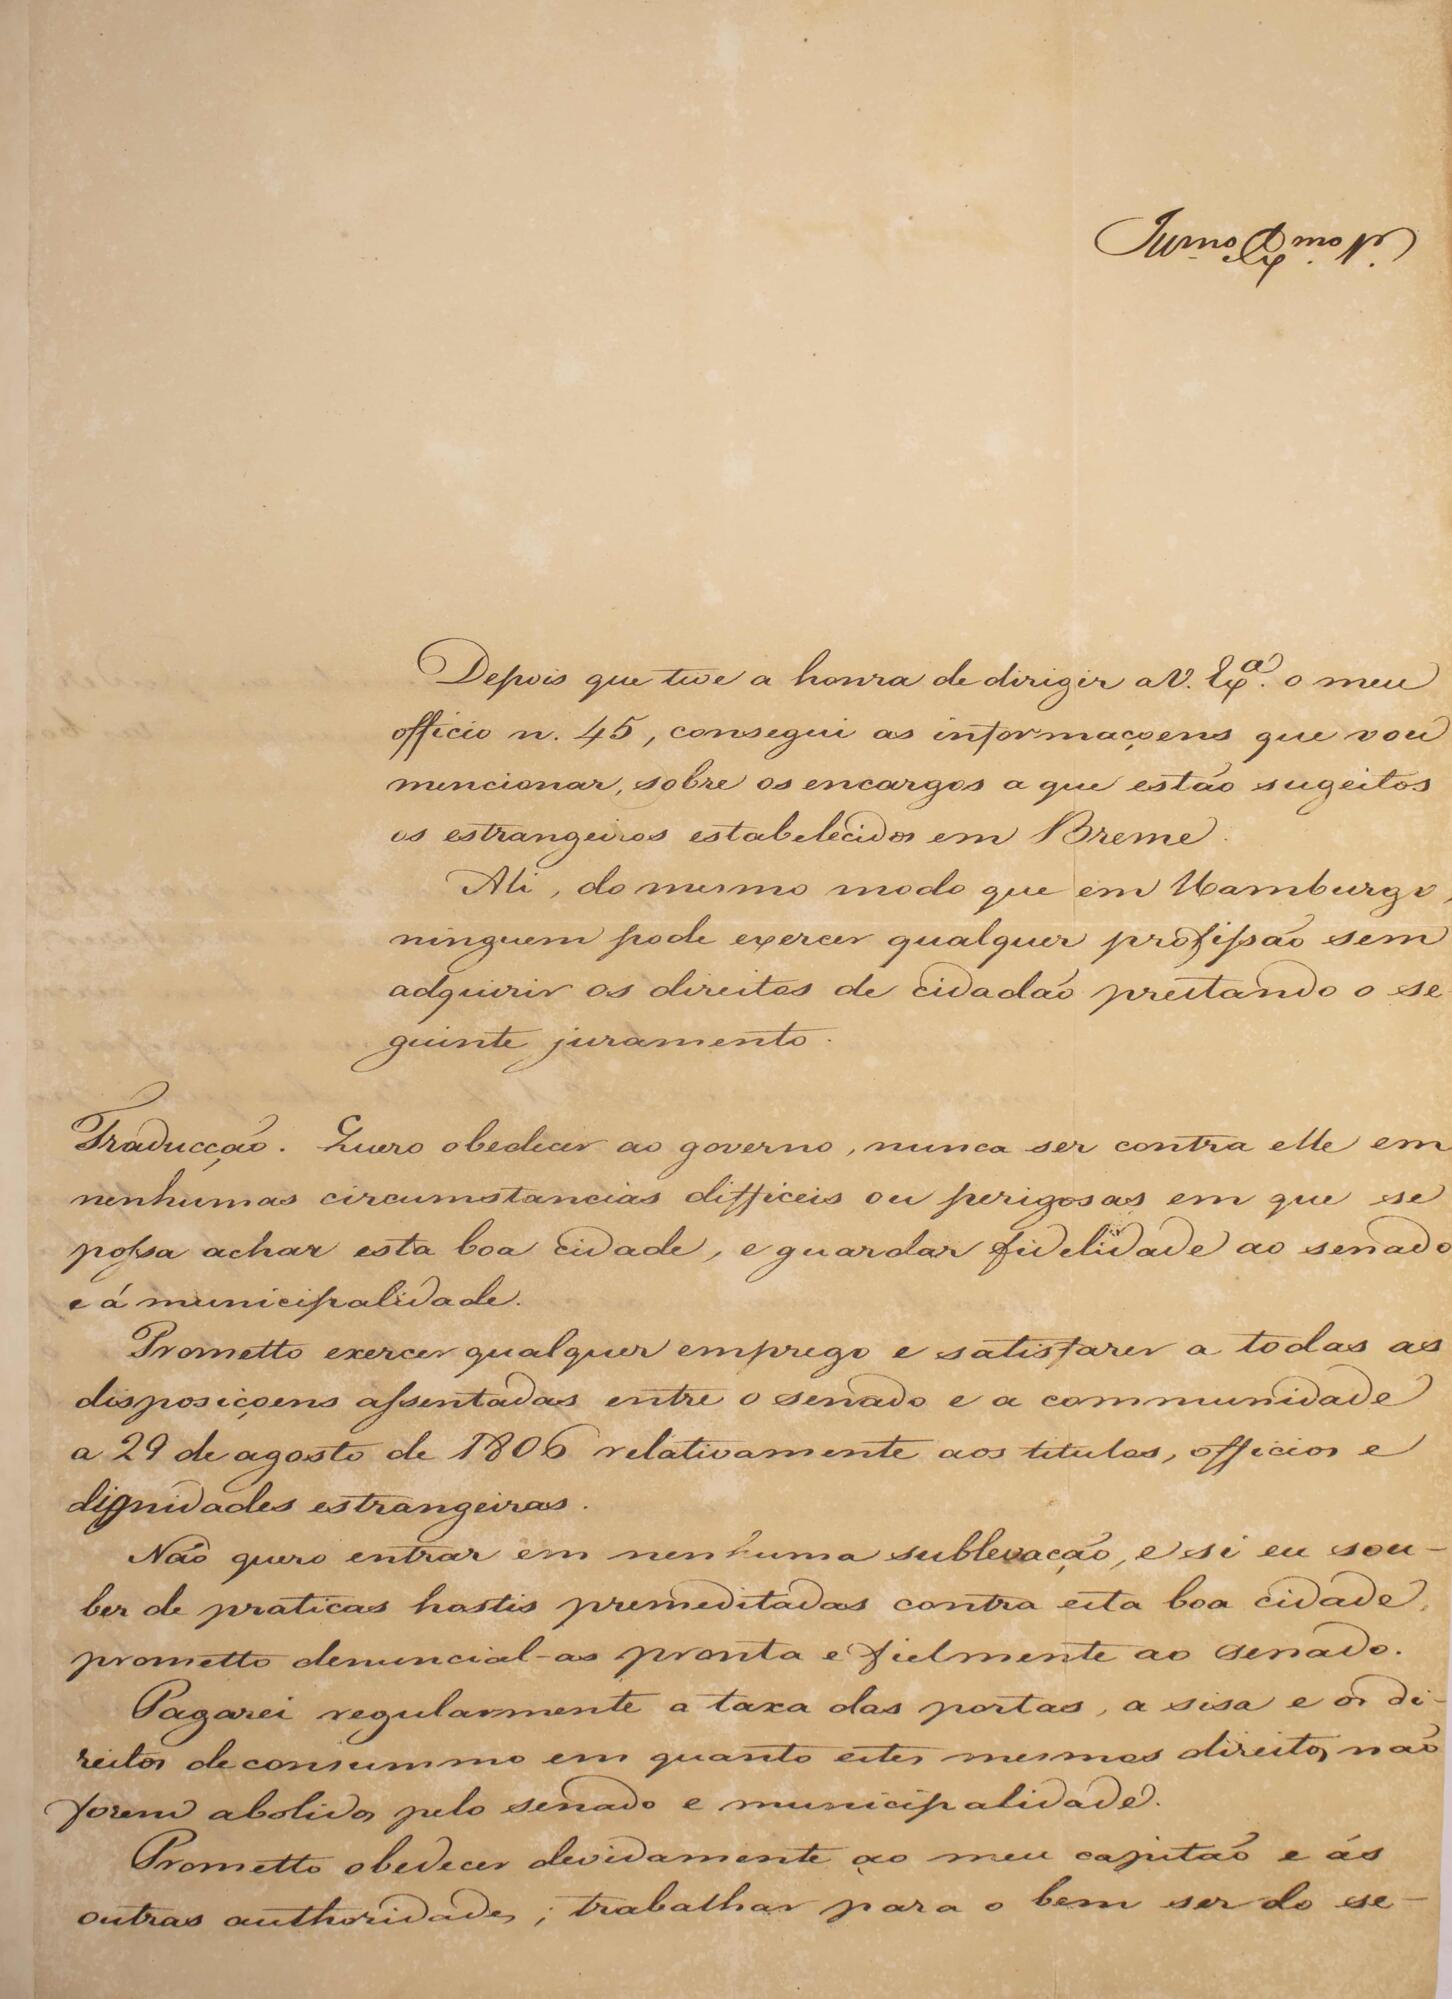 Illmo. Exmo. Sr.
Depois que tive a honra de dirigir a V. Exª. o meu
officio n. 45, consegui as informaçoens que vou
mencionar, sobre os encargos a que estão sugeitos
os estrangeiros estabelecidos em Breme.
Ali, do mesmo modo que em Hamburgo,
ninguem pode exercer qualquer profissão sem
adquirir os direitos de cidadão prestando o se
guinte juramento.
Traducção. Quero obedecer ao governo, nunca ser contra elle em
nenhumas circumstancias difficeis ou perigosas em que se
possa achar esta boa cidade, e guardar fidelidade ao senado
e á municipalidade.
Prometto exercer qualquer emprego e satisfazer a todas as
disposiçoens assentadas entre o senado e a communidade
a 29 de agosto de 1806 relativamente aos titulos, officios e
dignidades estrangeiras.
Não quero entrar em nenhuma sublevação, e si eu sou-
ber de praticas hostis premeditadas contra esta boa cidade,
prometto denuncial-as pronta e fielmente ao senado.
Pagarei regularmente a taxa das portas, a sisa e os di-
reitos de consummo em quanto estes mesmos direitos não
forem abolidos pelo senado e municipalidade.
Prometto obedecer devidamente ao meu capitão e ás
outras authoridades; trabalhar para o bem ser do se-